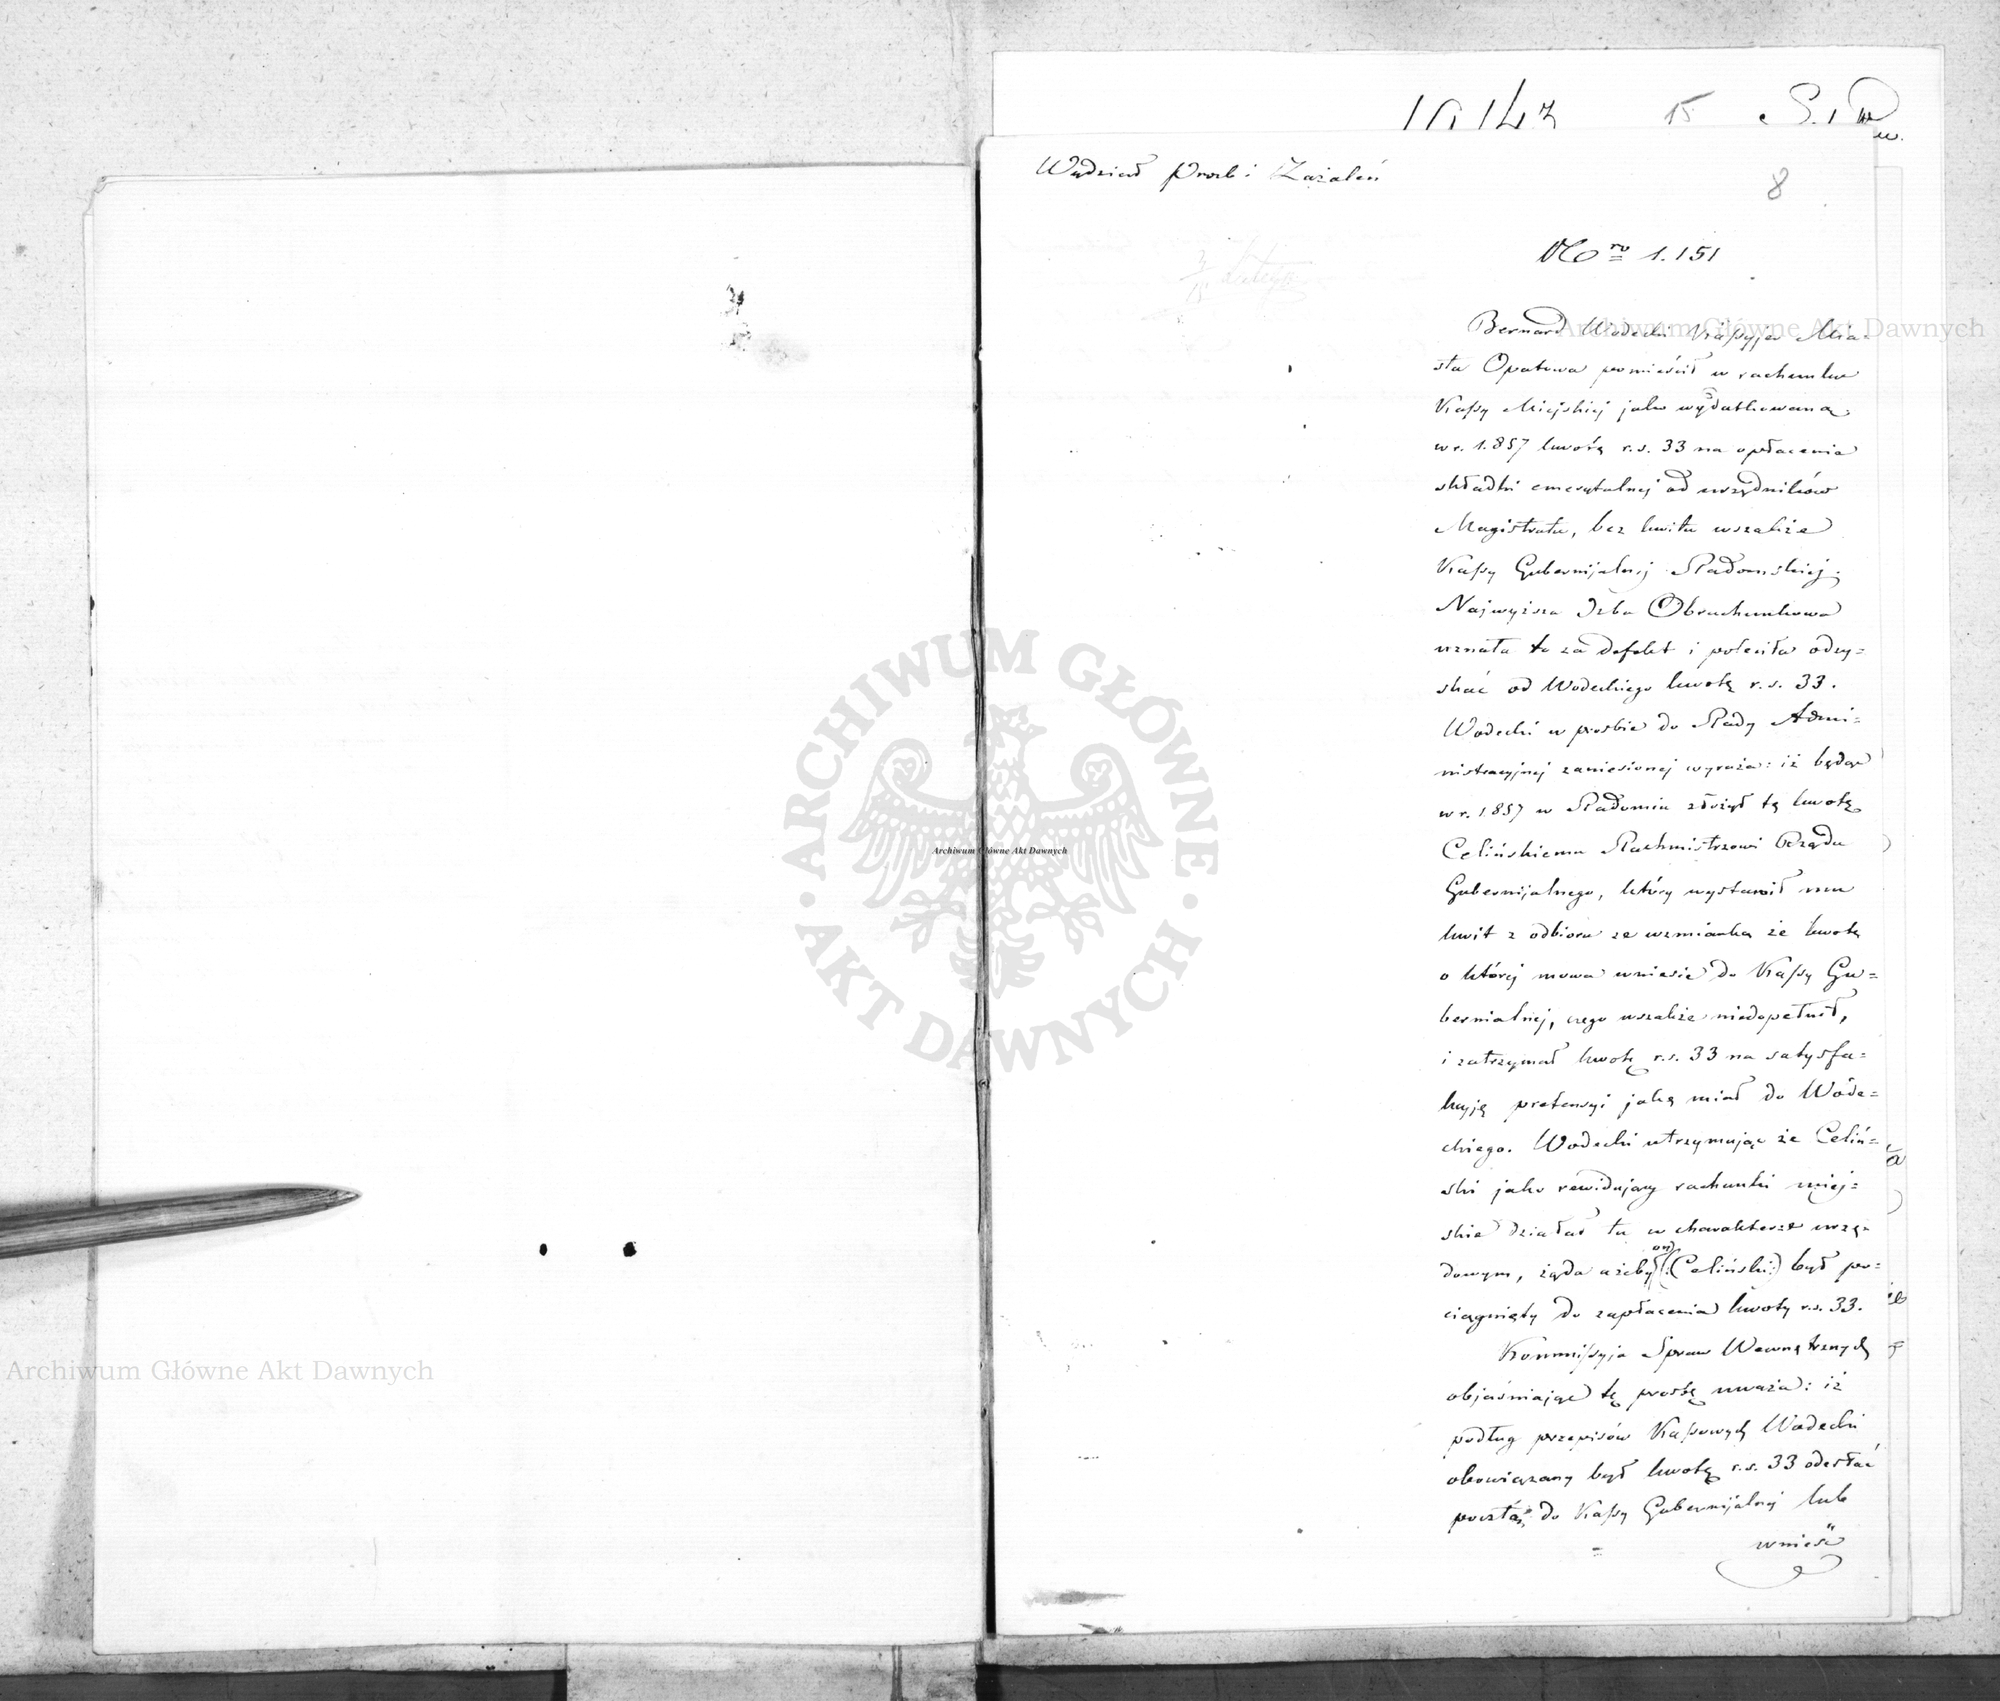 15
Wydział Proźb i Zażaleń
8
Nro 1.151
Bernard Wodecki Kassyjer Mia-
sta Opatowa pomieścił w rachunku
Kassy Miejskiej jako wydatkowaną
w r. 1.857 kwotę r.s. 33 na opłacenie
składki emerytalnej od urzędników
Magistratu, bez kwitu wszakże
Kassy Gubernijalnej Radomskiej.
Najwyższa Izba Obrachunkowa
uznała to za defekt i poleciła odzy=
skać od Wodeckiego kwotę r.s. 33.
Wodecki w prośbie do Rady Admi=
nistracyjnej zaniesionej wyraża: iż będąc
w r. 1.857 w Radomiu złożył tę kwotę
Celińskiemu Rachmistrzowi Rządu
Gubernijalnego, który wystawił mu
kwit z odbioru ze wzmianką że kwotę
o której mowa wniesie do Kassy Gu=
bernialnej, czego wszakże niedopełnił,
i zatrzymał kwotę r.s. 33 na satysfa=
kcyją pretensyi jaką miał do Wode=
ckiego. Wodecki utrzymując że Celiń=
ski jako rewidujący rachunki miej=
skie działał tu w charakterze urzę=
dowym, żąda ażeby on (:Celiński:) był po=
ciągnięty do zapłacenia kwoty r.s. 33.
Kommissyja Spraw Wewnętrznych
objaśniając tę prośbę uważa: iż
podług przepisów Kassowych Wodecki
obowiązany był kwotę r.s. 33 odesłać
pocztą do Kassy Gubernijalnej lub
wnieść
Archiwum Główne Akt Dawnych
Archiwum Główne Akt Dawnych
Archiwum Główne Akt Dawnych
ARCHIWUM GŁÓWNE AKT DAWNYCH